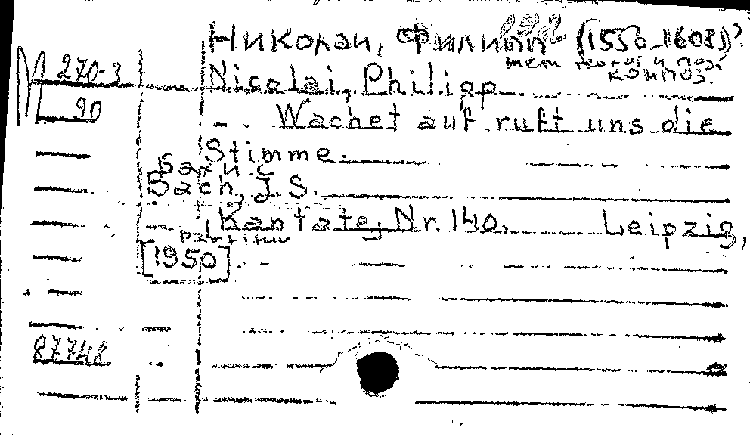 Николаи, Филипп (1550-1608)?
нем. теолог и поэт
композ.
М 270-3
Nicolai, Philipp
90
-. Wachet auf ruft uns die
Stimme.
Бах И.С.
Bach, J.S.
Kantate, Nr. 140. Leipzig,
partitur
[1950].
87748